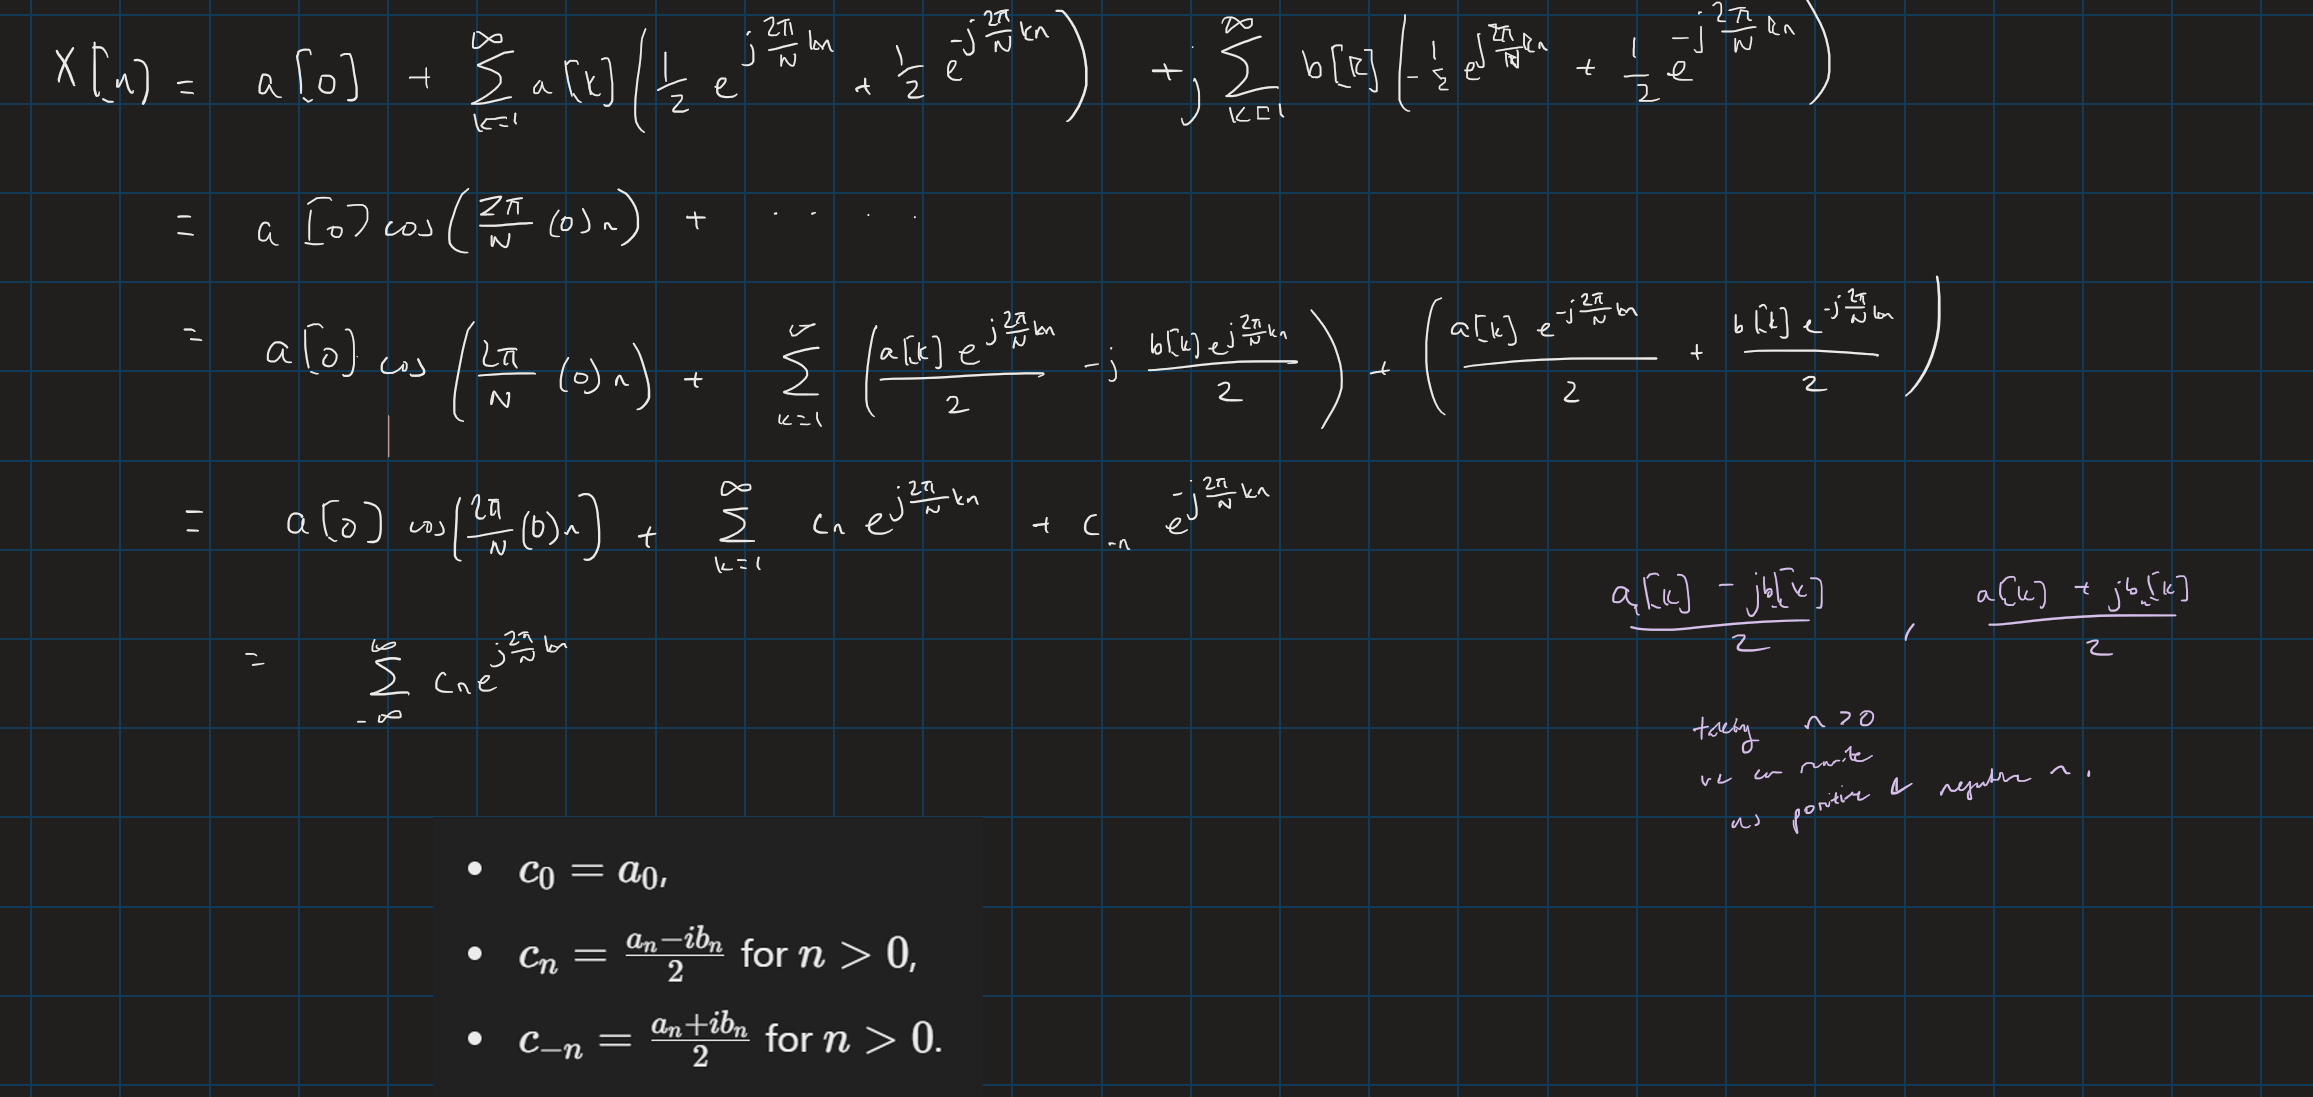 X[n] = a[0] + ∞ Σ k=1 a[k] (1/2 e^{j 2π/N kn} + 1/2 e^{-j 2π/N kn}) + j ∞ Σ k=1 b[k] (-1/2 e^{j 2π/N kn} + 1/2 e^{-j 2π/N kn})
= a[0] cos(2π/N (0) n) + . . . .
= a[0] cos(2π/N (0) n) + Σ k=1 (a[k] e^{j 2π/N kn}/2 - j b[k] e^{j 2π/N kn}/2) + (a[k] e^{-j 2π/N kn}/2 + b[k] e^{-j 2π/N kn}/2)
= a[0] cos(2π/N (0) n) + ∞ Σ k=1 c_n e^{j 2π/N kn} + c_{-n} e^{-j 2π/N kn}
a[k] - jb[k]/2 , a[k] + jb[k]/2
= ∞ Σ -∞ c_n e^{j 2π/N kn}
taking n > 0
we can rewrite
as positive & negative n.
• c_0 = a_0,
• c_n = a_n-ib_n/2 for n > 0,
• c_{-n} = a_n+ib_n/2 for n > 0.